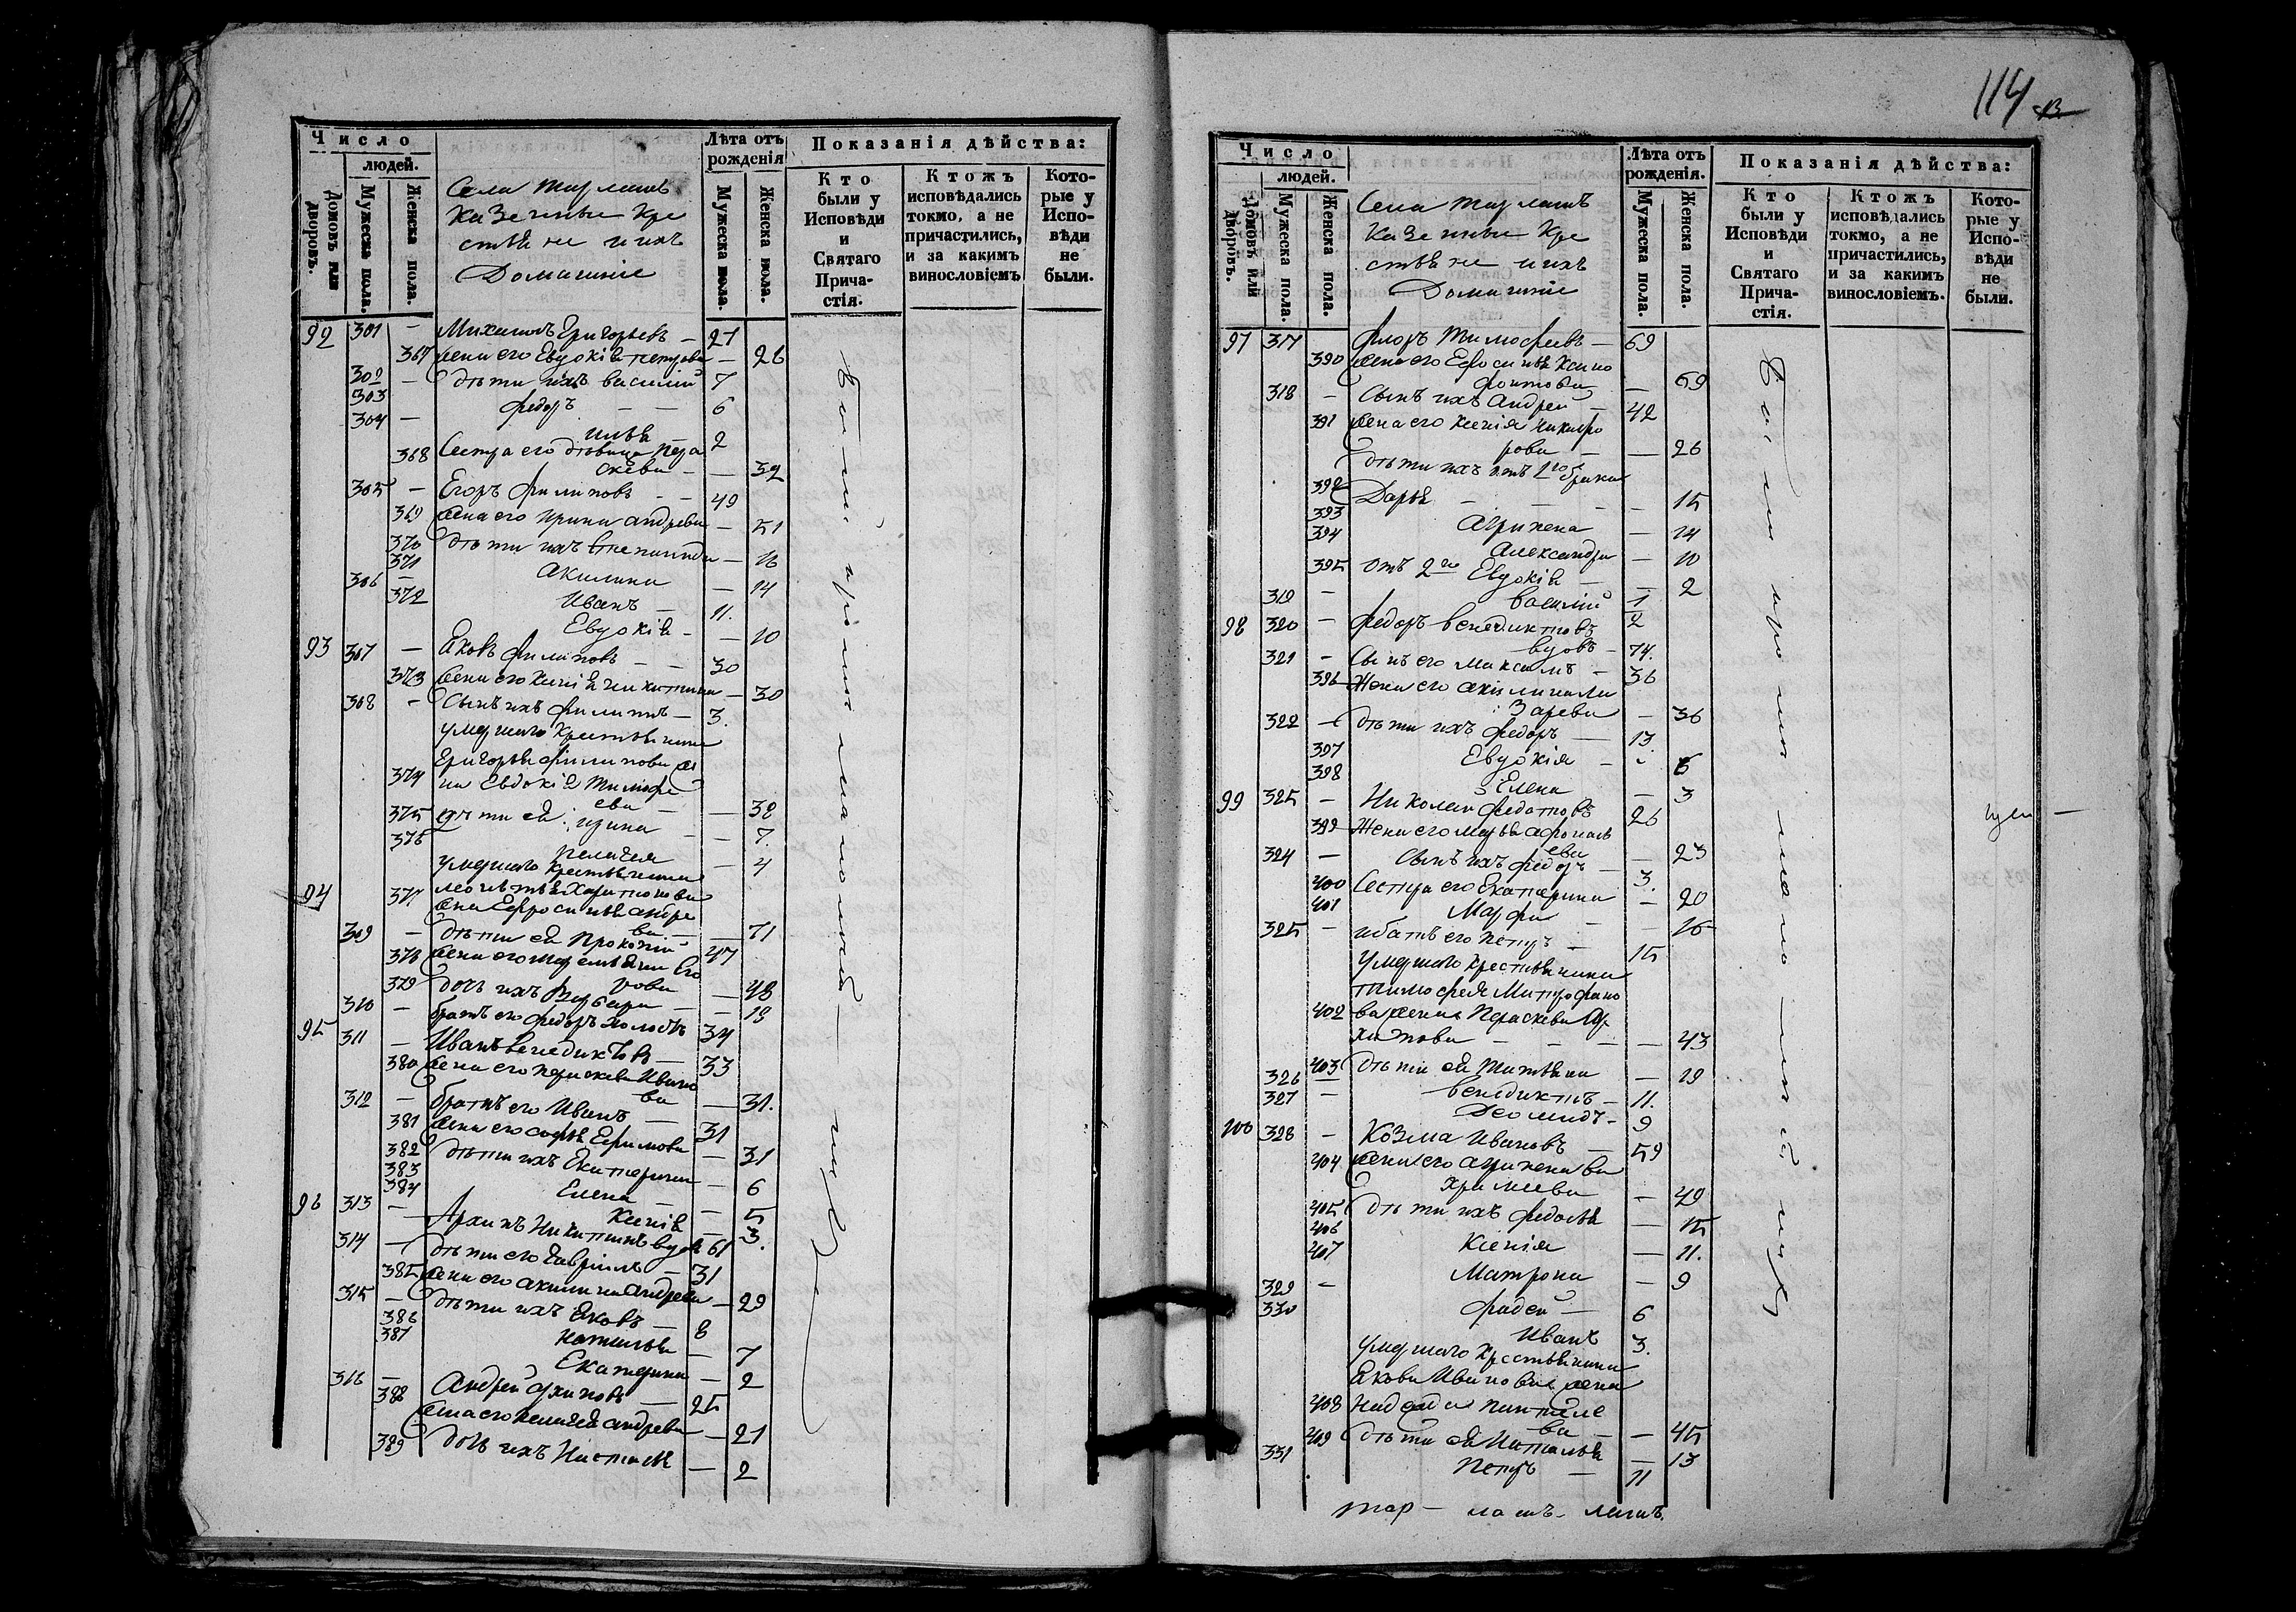 Число
людей.
Домовъ или дворовъ.
Мужеска пола.
Женска пола.
Села Тарлатъ
Казенные Кре
стьяне и ихъ
Домашніе
Лѣта отъ рожденія
Мужеска пола.
Женска пола.
Показанія дѣйства:
Кто были у Исповѣди и Святаго Прича-стія.
Ктожъ исповѣдались токмо, а не причастились, и за какимъ винословіемъ
Кото-рые у Испо-вѣди не были.
92 301 — Михаилъ Григорьевъ — 27
367 жена его Евдокія Петрова — 26
302 — дѣти ихъ Василий 7
303 Федоръ — — 6
304 — Илья 2
368 Сестра его дѣвица Пера
скева — — 32
305 — Егоръ Филиповъ — — 49
369 жена его Ирина Андреева — 51
370 дѣти ихъ — 16
371 Акилина — 14
306 — Иванъ — 11.
372 Евдокія — — 10
93 307 — Яковъ Филиповъ — — 30
373 жена его Ксенія Никитина — 30
308 — Сынъ ихъ Филипъ — 3.
умершаго Крестьянина
Григорья Филипова же
374 на Евдокія Тимофе
ева — — 38
375 дѣти ея Ирина — — 7.
376 Пелагея — 4
умершаго Крестьянина
94 Леонтья Харитонова
377 жена Ефросинья Андре
ва — — 71
309 — дѣти ея Прокопий 47
378 жена его Его
рова — 48
379 дочь ихъ Варвара — — 19
310 — братъ его Федоръ холостъ 34
95 311 — Иванъ Венедиктовъ — 33
380 жена его Перискева Ивано
ва — 31.
312 — братъ его Иванъ — 31
381 жена его Софья Ефимова — 31
382 дѣти ихъ Екатерина — 6
383 Елена — — 5
384 Ксенія — 3.
96 313 — Архипъ Никитинъ вдовъ 61
314 — дѣти его Гавріилъ — 31
385 жена его Акилина Андреева — 29
315 — дѣти ихъ Яковъ — 8
386 Наталья — 7
387 Екатерина — 2
316 — Андрей Архиповъ — 25
388 жена его Пелагея Андреева — 21
389 дочь ихъ Настасья — 2
114
Число
людей.
Домовъ или дворовъ.
Мужеска пола.
Женска пола.
Села Тарлатъ
Казенные Кре
стьяне и ихъ
Домашніе
Лѣта отъ рожденія.
Мужеска пола.
Женска пола.
Показанія дѣйства:
Кто были у Исповѣди и Святаго Прича-стія.
Ктожъ исповѣдались токмо, а не причастились, и за какимъ винословіемъ.
Кото-рые у Испо-вѣди не были.
97 317 Флоръ Тимофеевъ — 69
390 жена его Ефросинья Ксено
фонтова — 69
318 — Сынъ ихъ Андрей — 42
391 жена его Ксенія Никифо
рова — — 26
дѣти ихъ отъ 1го брака
392 Дарья — — 15
393 Агрипена — 14
394 Александра — 10
395 отъ 2го Евдокія — — 2
319 — Василий 1
98 320 — Федоръ Венедиктовъ 2
вдовъ — 74.
321 — Сынъ его Максимъ — 36
396 Жена его Акилина Ла
зарева — 36
322 — дѣти ихъ Федоръ — 13.
397 Евдокія — 6
398 Елена — 3
99 323 — Николай Федотовъ 26
399 Жена его Марья Афонась
ева — 23
324 — Сынъ ихъ Федоръ — 3.
400 Сестра его Екатерина — 20
401 Марфа — — 16
325 — и братъ его Петръ — 15
умершаго Крестьянина
Тимофея Митрофано
402 ва жена Пераскева Ар
хипова — — — 43
403 дѣти ея Татьяна — 19
326 — Венедиктъ — 11.
327 — Деомидъ — 9
100 328 — Козма Ивановъ — 59
404 жена его Агрипена Ва
храмеева — 49
405 дѣти ихъ Федосья — 15
406 Ксенія — 11.
407 Матрона — 9
329 — Фадей — 6
330 Иванъ 3.
умершаго Крестьянина
Якова Иванова жена
408 Надежда Пантеле
ва — — 45
409 дѣти ея Наталья — 13
331 Петръ — 11